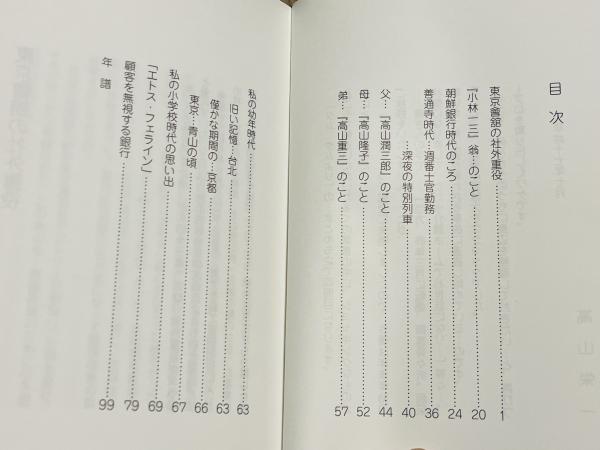 目次
東京會舘の社外重役……1
『小林一三』翁…のこと……20
朝鮮銀行時代のころ……24
善通寺時代…週番士官勤務……36
…深夜の特別列車……40
父…『高山潤三郎』のこと……44
母…『高山隆子』のこと……52
弟…『高山重三』のこと……57
私の幼年時代……63
旧い記憶…台北……63
僅かな期間の…京都……66
東京…青山の頃……67
私の小学校時代の思い出……69
「エトス・フェライン」……79
顧客を無視する銀行……99
年譜
高山栄一